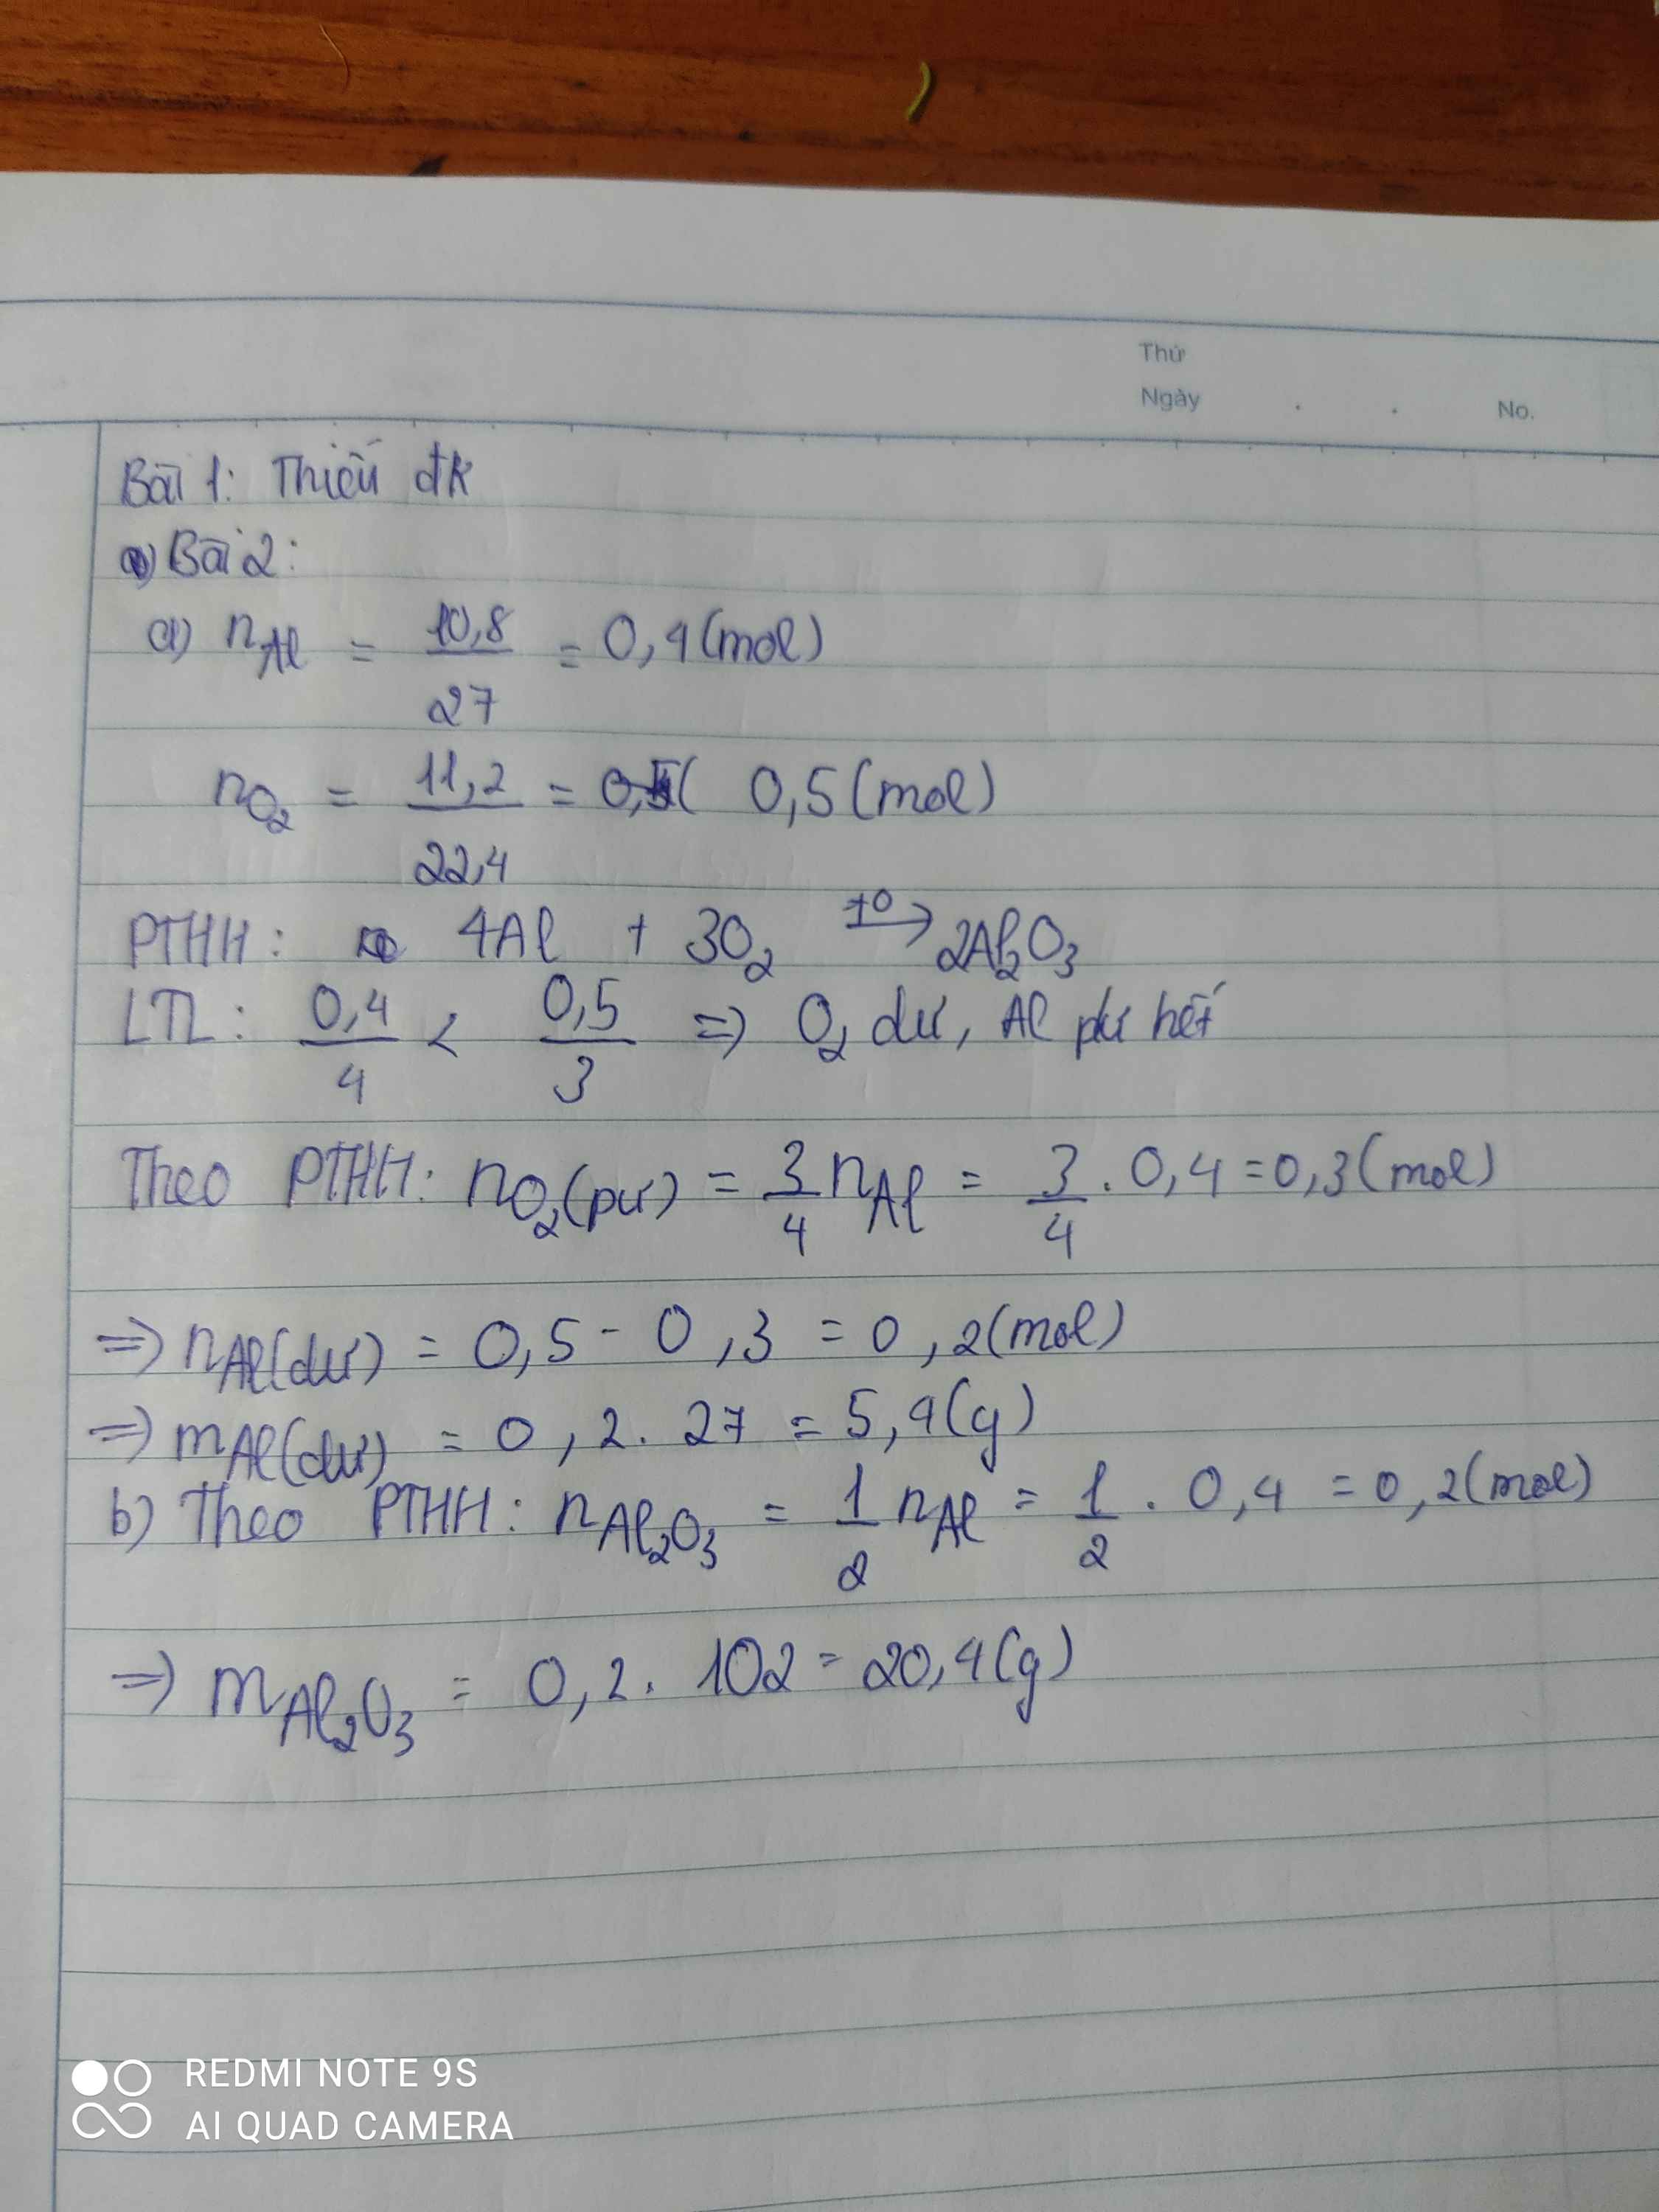 Thứ
Ngày . . No.
Bài 1: Thiếu đk
Bài 2:
a) nAl = 10,8/27 = 0,4 (mol)
nO2 = 11,2/22,4 = 0,5 (mol)
PTHH: 4Al + 3O2 t⁰→ 2Al2O3
LTL: 0,4/4 < 0,5/3 => O2 dư, Al pư hết
Theo PTHH: nO2(pư) = 3/4 nAl = 3/4 . 0,4 = 0,3 (mol)
=> nAl(dư) = 0,5 - 0,3 = 0,2 (mol)
=> mAl(dư) = 0,2 . 27 = 5,4 (g)
b) Theo PTHH: nAl2O3 = 1/2 nAl = 1/2 . 0,4 = 0,2 (mol)
=> mAl2O3 = 0,2 . 102 = 20,4 (g)
REDMI NOTE 9S
AI QUAD CAMERA